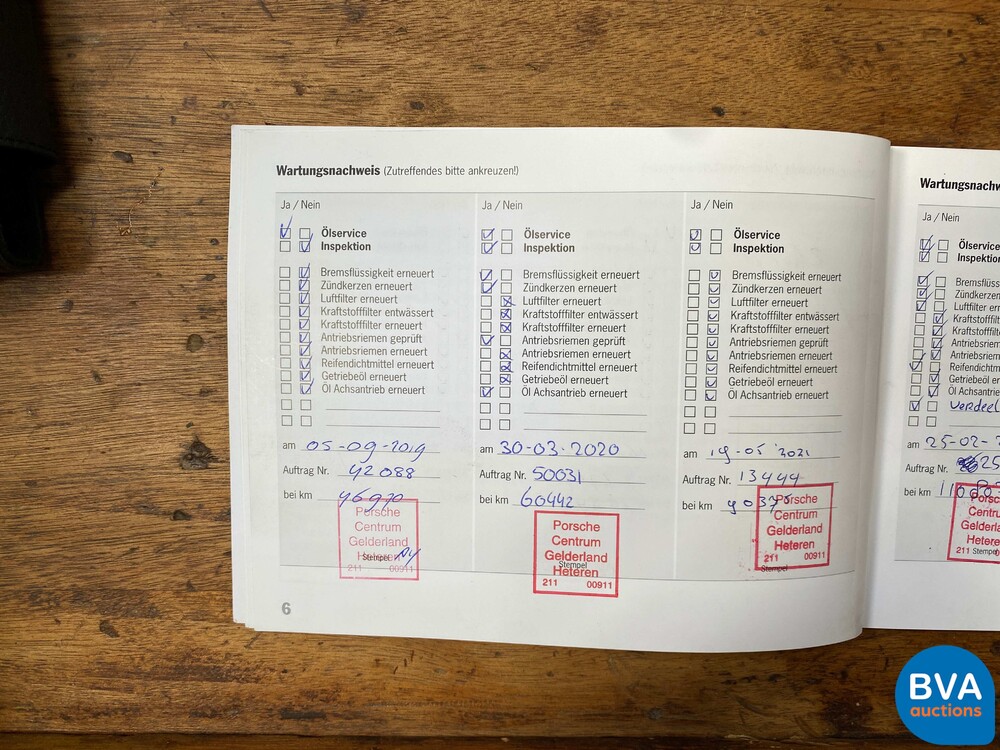 Wartungsnachweis (Zutreffendes bitte ankreuzen!)
Ja / Nein
Ölservice
Inspektion
Bremsflüssigkeit erneuert
Zündkerzen erneuert
Luftfilter erneuert
Kraftstofffilter entwässert
Kraftstofffilter erneuert
Antriebsriemen geprüft
Antriebsriemen erneuert
Reifendichtmittel erneuert
Getriebeöl erneuert
Öl Achsantrieb erneuert
am 05-09-2019
Auftrag Nr. 42088
bei km 46970
Porsche
Centrum
Gelderland
Heteren
Stempel
211 00911
Ja / Nein
Ölservice
Inspektion
Bremsflüssigkeit erneuert
Zündkerzen erneuert
Luftfilter erneuert
Kraftstofffilter entwässert
Kraftstofffilter erneuert
Antriebsriemen geprüft
Antriebsriemen erneuert
Reifendichtmittel erneuert
Getriebeöl erneuert
Öl Achsantrieb erneuert
am 30-03-2020
Auftrag Nr. 50031
bei km 60442
Porsche
Centrum
Gelderland
Stempel
Heteren
211 00911
Ja / Nein
Ölservice
Inspektion
Bremsflüssigkeit erneuert
Zündkerzen erneuert
Luftfilter erneuert
Kraftstofffilter entwässert
Kraftstofffilter erneuert
Antriebsriemen geprüft
Antriebsriemen erneuert
Reifendichtmittel erneuert
Getriebeöl erneuert
Öl Achsantrieb erneuert
am 19-05-2021
Auftrag Nr. 13444
bei km 90375
Porsche
Centrum
Gelderland
Heteren
211 00911
Stempel
6
Wartungsnachw
Ja / Nein
Ölservice
Inspektion
Bremsflüss
Zündkerzen
Luftfilter er
Kraftstofffilt
Kraftstofffilt
Antriebsriem
Antriebsriem
Reifendichtm
Getriebeöl e
Öl Achsantri
Verdeel
am 25-02-
Auftrag Nr. 25
bei km
Porsc
Centru
Gelder
Hetere
211 Stempel
BVA
auctions